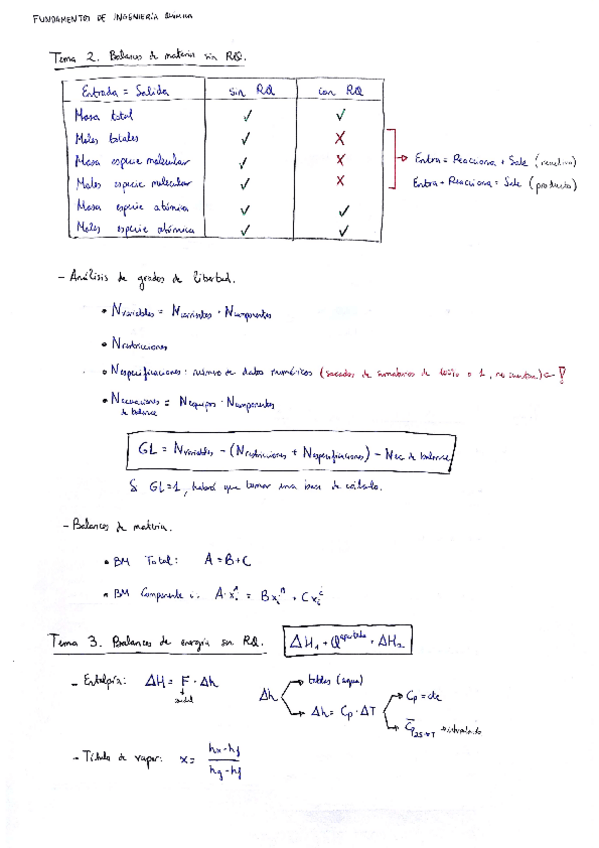 FUNDAMENTOS DE INGENIERÍA QUÍMICA
Tema 2. Balances de materia sin RQ.
Entrada = Salida sin RQ con RQ
Masa total ✓ ✓
Moles totales ✓ X
Masa especie molecular ✓ X
Moles especie molecular ✓ X
Masa especie atómica ✓ ✓
Moles especie atómica ✓ ✓
Entra = Reacciona + Sale (reactivo)
Entra + Reacciona = Sale (producto)
- Análisis de grados de libertad.
• Nvariables = Ncorrientes · Ncomponentes
• Nrestricciones
• Nespecificaciones: número de datos numéricos (sacados de sumatorios de 100% o 1, no cuentan)
• Necuaciones de balance = Nequipos · Ncomponentes
GL = Nvariables - (Nrestricciones + Nespecificaciones) - Nec de balance
Si GL=1, habrá que tomar una base de cálculo.
- Balances de materia.
• BM Total: A = B+C
• BM Componente i: A·xᵢᴬ = Bxᵢᴮ + Cxᵢᶜ
Tema 3. Balances de energía sin RQ. ΔH₁ + Qaportado = ΔH₂
- Entalpía: ΔH = F · Δh
caudal
Δh → tablas (agua)
→ Δh = Cp · ΔT → Cp = cte
→ C̅p 25→T
- Título de vapor: x = hx-hf / hg-hf